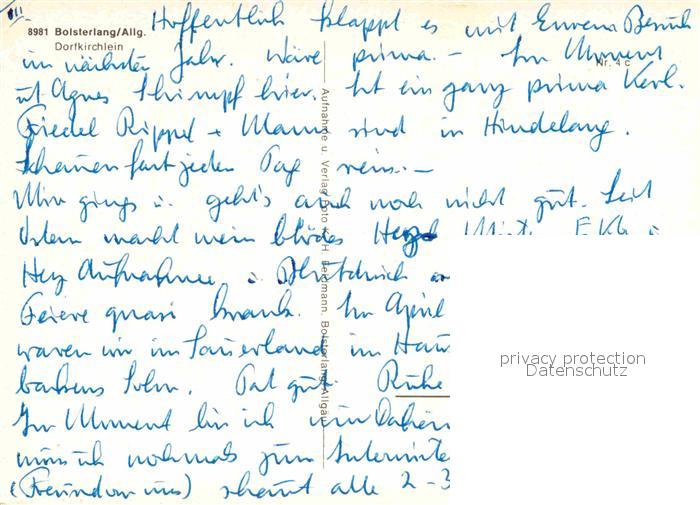 III
8981 Bolsterlang/Allg.
Dorfkirchlein
Nr. 4 c
Aufnahme u. Verlag Foto K. H. Bergmann. Bolsterlang/Allgäu
Hoffentlich klappt es mit Eurem Besuch
im nächsten Jahr. Wäre prima. – Im Moment
ist Agnes Schimpf hier. Ist ein ganz prima Kerl.
Friedel Rippel + Mann sind in Hindelang.
Schauen fast jeden Tag rein. –
Mir gings u. geht's auch noch nicht gut. Seit
Ostern macht mein blödes Herz EKG
Herz Aufnahme Blutdruck
Feiere quasi krank. Im April
waren wir im Sauerland im
Sohn. Tat gut. Ruhe
Im Moment bin ich
muss ich nochmals zum
(Freund von uns) schaut alle 2-3
privacy protection
Datenschutz